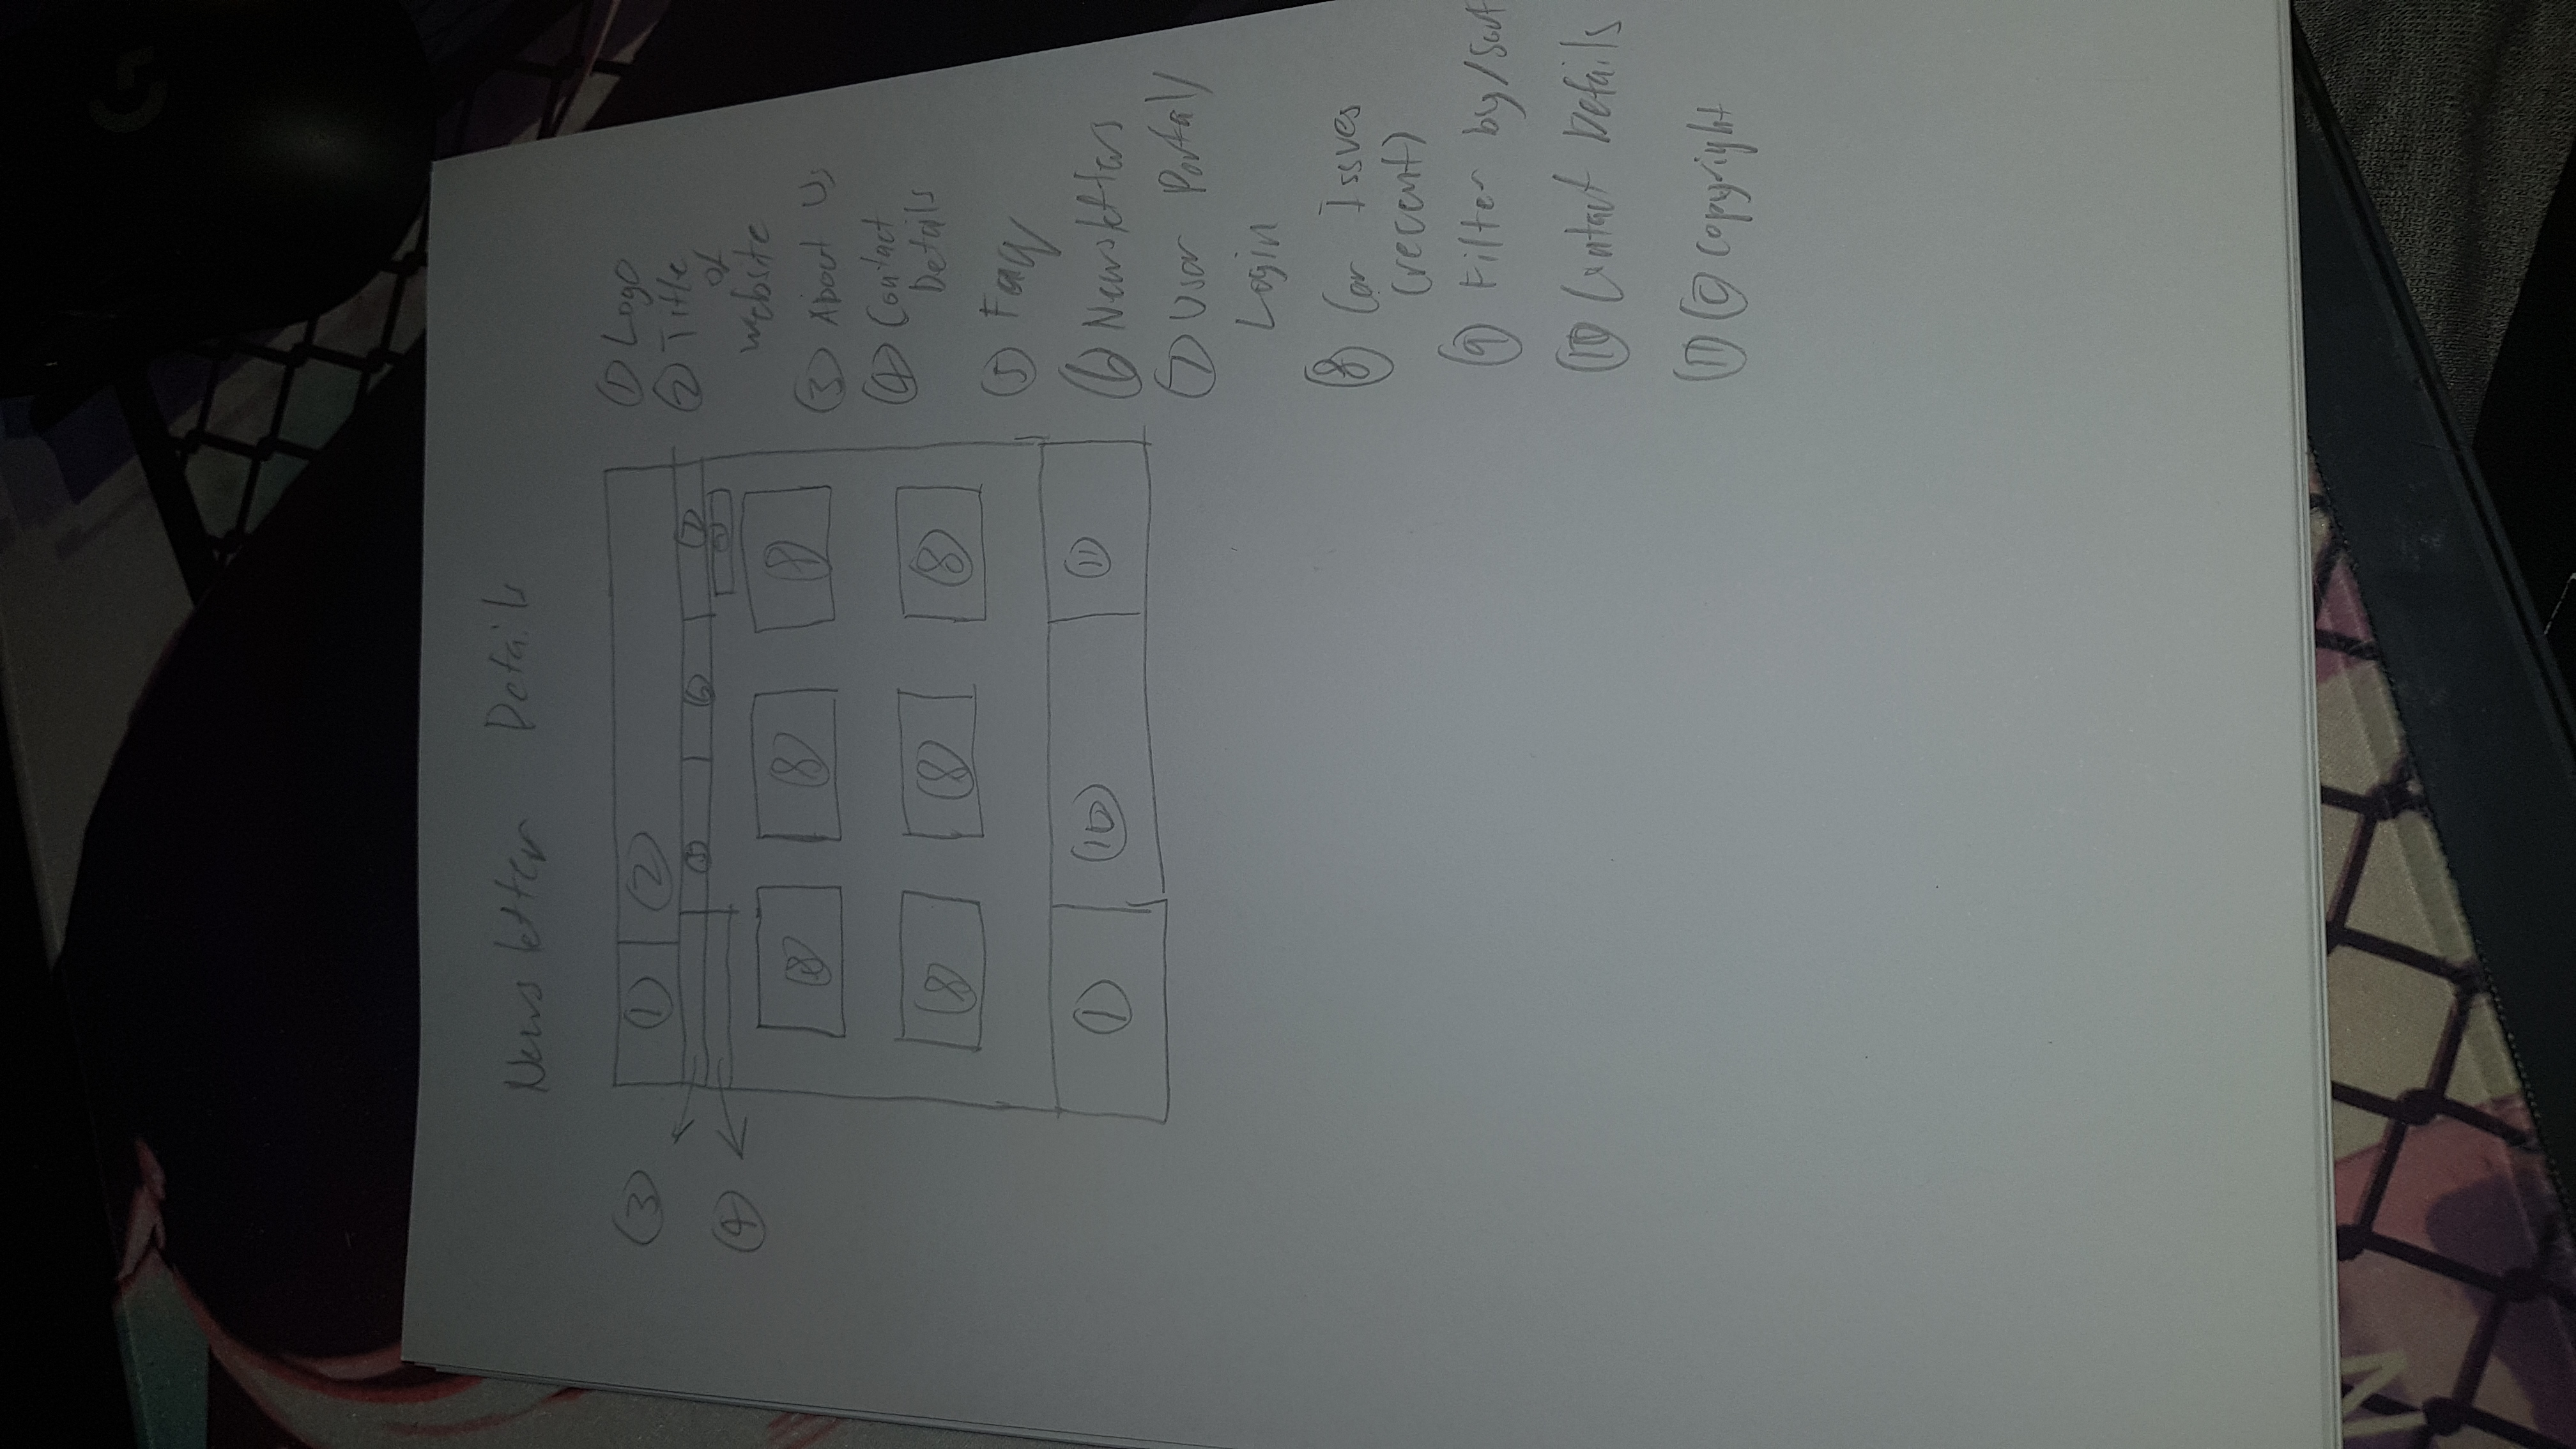 Newsletter Details
③
① ②
① Logo
② Title
of
website
⑤ ⑥ ⑦
④
⑨
⑧ ⑧ ⑧
③ About Us
④ Contact
Details
⑧ ⑧ ⑧
⑤ Faq
① ⑩ ⑪
⑥ Newsletters
⑦ User Portal/
Login
⑧ Car Issues
(recent)
⑨ Filter by/Sort
⑩ Contact Details
⑪ © Copyright
N